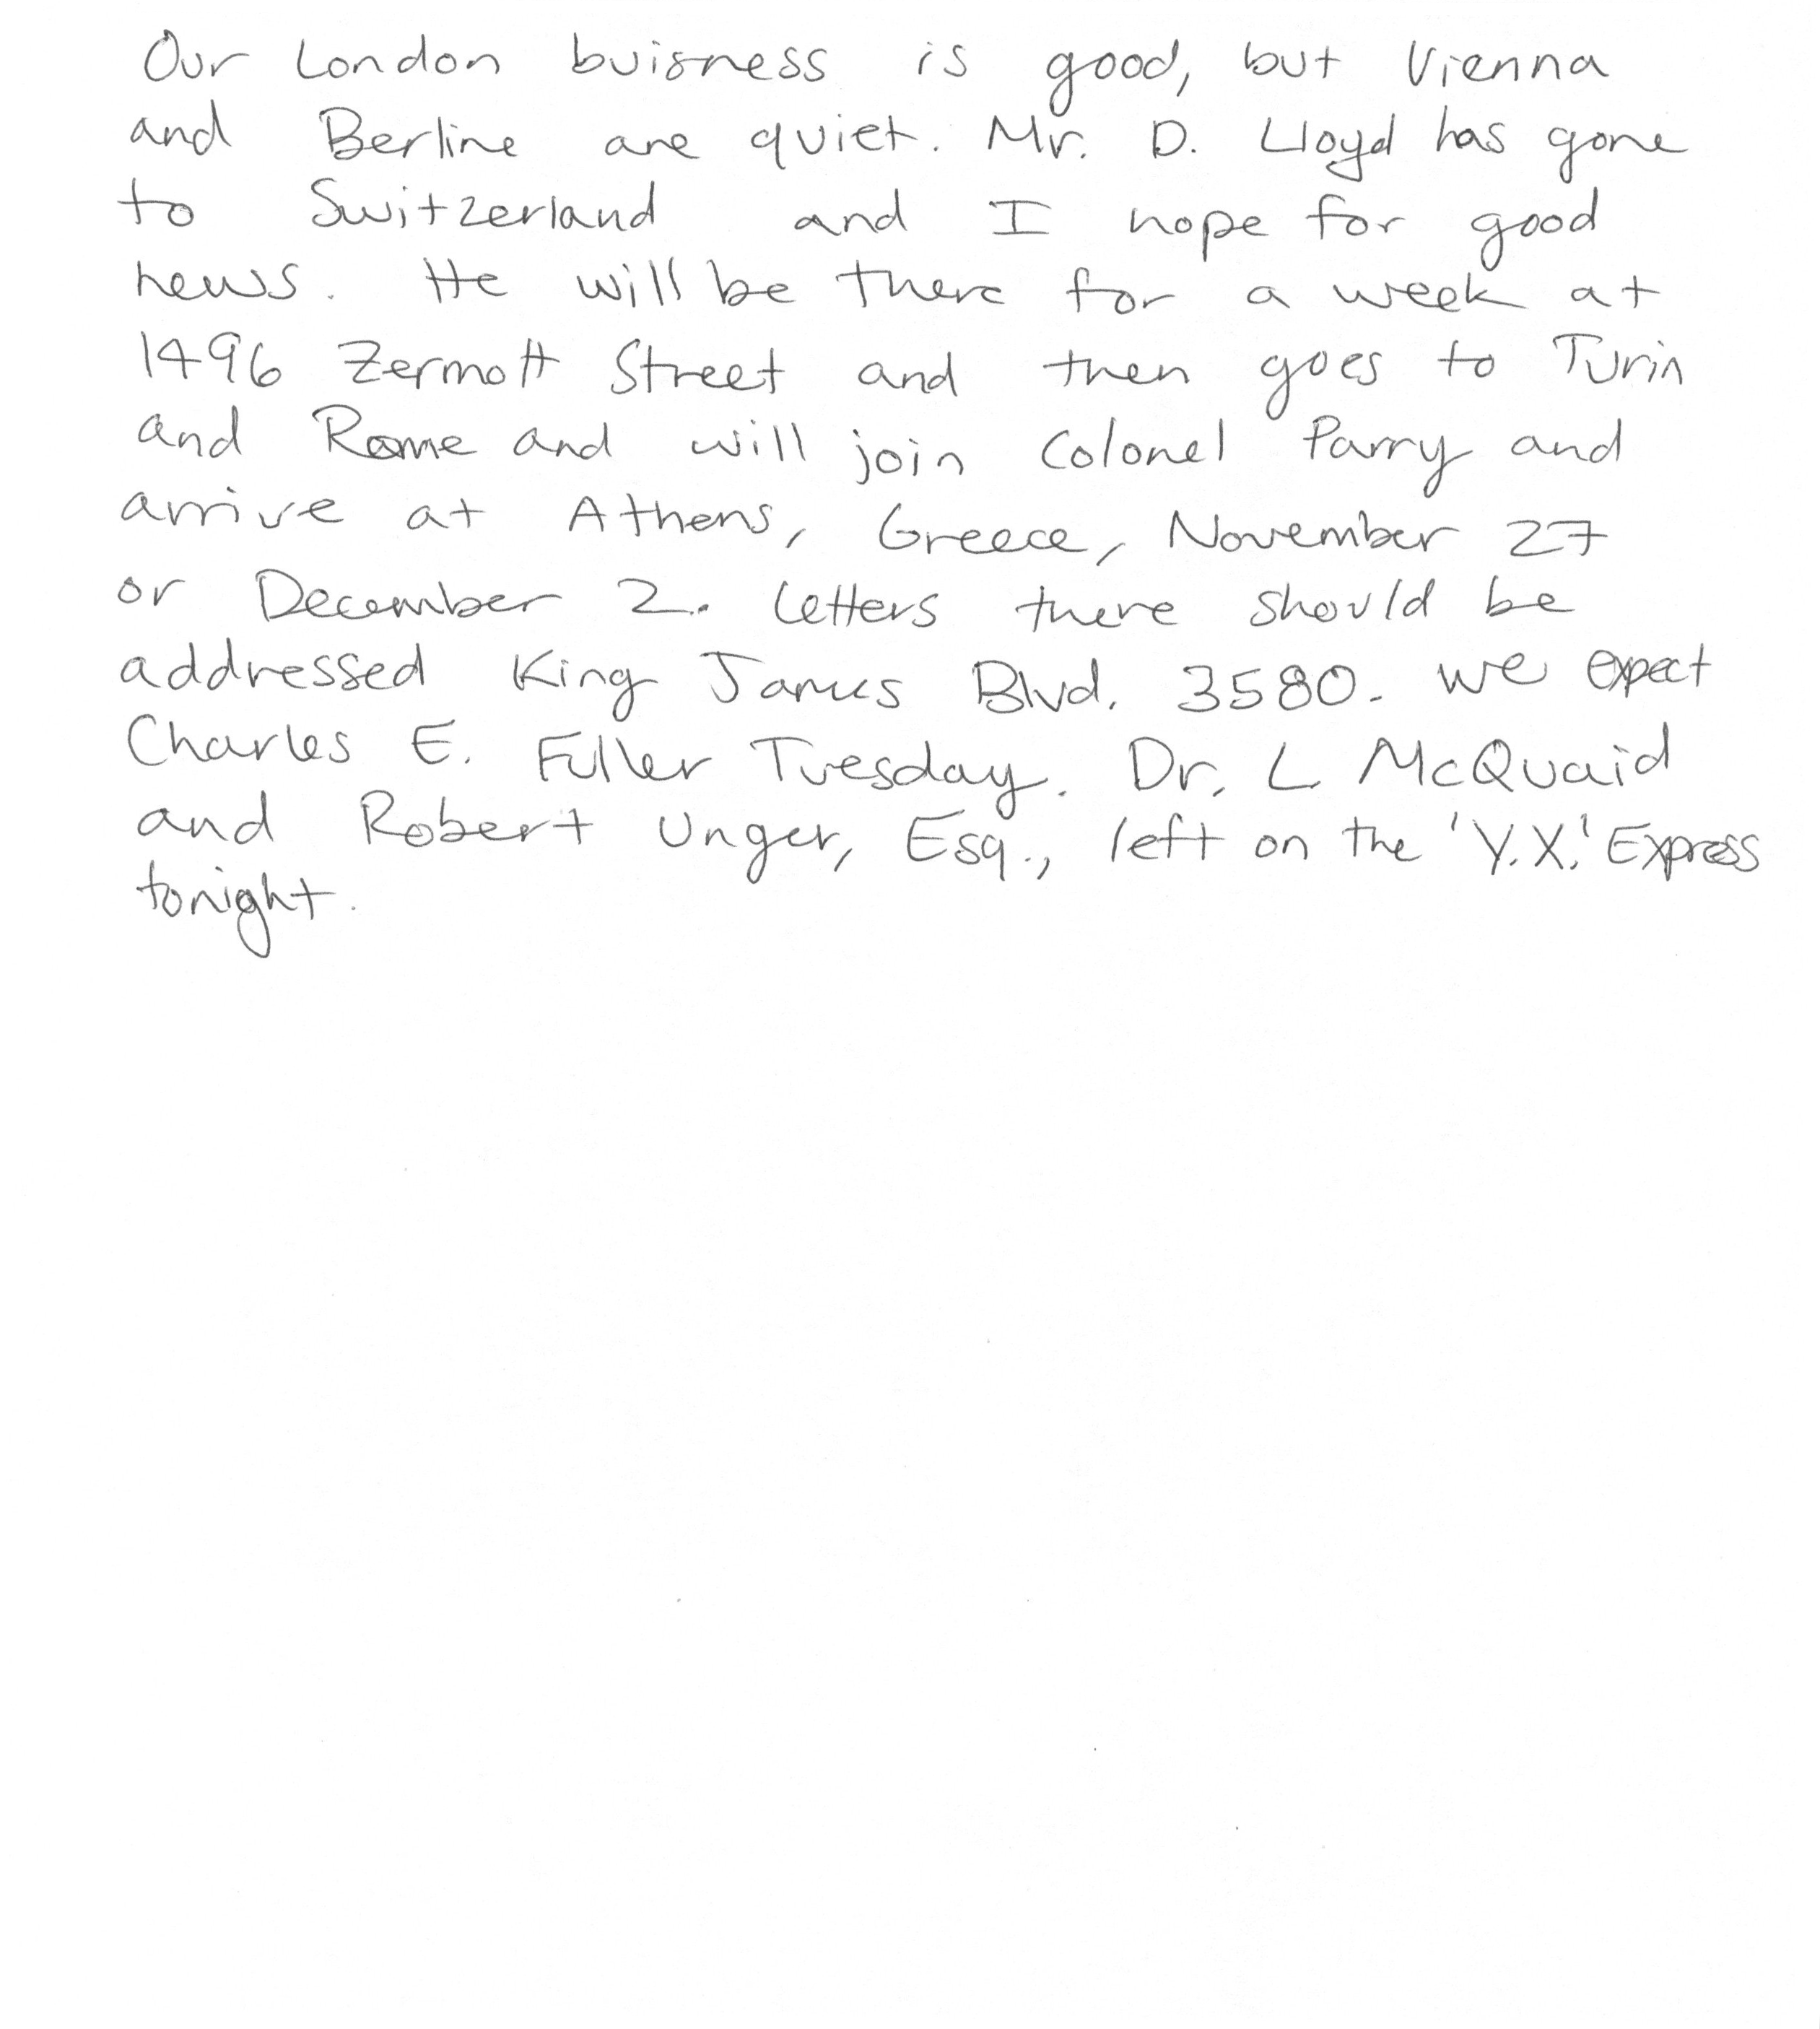 Our London buisness is good, but Vienna
and Berline are quiet. Mr. D. Lloyd has gone
to Switzerland and I hope for good
news. He will be there for a week at
1496 Zermott Street and then goes to Turin
and Rome and will join Colonel Parry and
arrive at Athens, Greece, November 27
or December 2. Letters there should be
addressed King James Blvd. 3580. We expect
Charles E. Fuller Tuesday. Dr. L McQuaid
and Robert Unger, Esq., left on the 'Y.X.' Express
tonight.